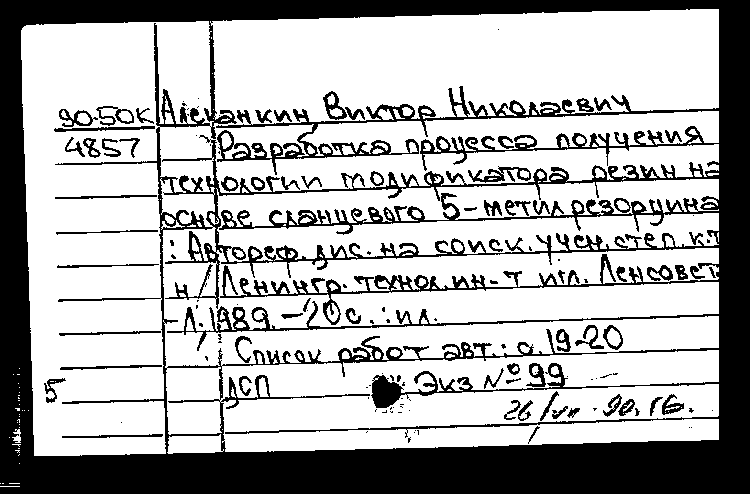 90-50К Алеханкин, Виктор Николаевич
4857 Разработка процесса получения
технологии модификатора резин на
основе сланцевого 5-метилрезорцина
: Автореф. дис. на соиск. учен. степ. к.т
н / Ленингр. технол. ин-т им. Ленсовета
-Л. 1989. -20с. : ил.
Список работ авт.: с. 19-20
5 ДСП Экз № 99
26/VII-90. ГБ.